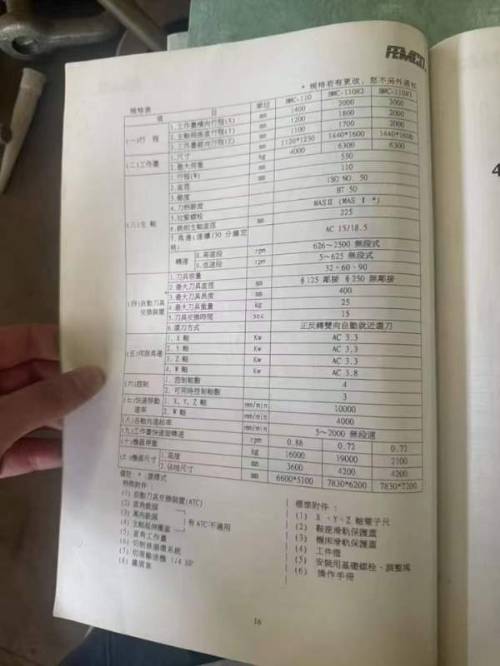 FEMCO
*規格若有更改,恕不另外通知
規格表
項 目 單位 BMC-110 BMC-110R2 BMC-110R3
(一)行 程 1.工作臺橫向行程(X) mm 1400 2000 3000
mm 1200 1800 2000
mm 1100 1700 2000
(二)工作臺 1.尺寸 mm 1120*1250 1440*1600 1440*1600
2.最大荷重 kg 4000 6300 6300
行程(W) mm 550
2.直徑 mm 110
3.錐度 ISO NO. 50
BT 50
5.拉緊螺栓 MAS II (MAS I *)
mm 225
AC 15/18.5
轉速 a.高速段 rpm 626~2500 無段式
b.低速段 rpm 5~625 無段式
(四)自動刀具交換裝置 1.刀具容量 32、60、90
2.最大刀具直徑 mm φ125 鄰接 φ250 無鄰接
3.最大刀具長度 mm 400
4.最大刀具重量 kg 25
5.刀具交換時間 sec 15
6.選刀方式 正反轉雙向自動就近選刀
1. X 軸 Kw AC 3.3
2. Y 軸 Kw AC 3.3
3. Z 軸 Kw AC 3.3
4. W 軸 Kw AC 3.8
(六)控制 1.控制軸數 4
2.可同時控制軸數 3
(七)快速移動速率 1. X、Y、Z 軸 mm/min 10000
2. W 軸 mm/min 4000
mm/min 5~2000 無段速
rpm 0.88 0.72 0.72
kg 16000 19000
1.高度 mm 3600 4200 4200
2.佔地尺寸 mm 6600*5100 7830*6200 7830*7200
特殊附件:
(1) 自動刀具交換裝置(ATC)
(2) 直角銑頭
(3) 萬向銑頭
(4) 主軸延伸護蓋
有 ATC 不適用
(5) 直角工作臺
(6) 切削液循環系統
(7) 切屑輸送機 1/4 HP
(8) 鐵屑車
標準附件:
(1) X、Y、Z 軸電子尺
(2) 鞍座滑軌保護蓋
(3) 機床滑軌保護蓋
(4) 工作燈
(5) 安裝用基礎螺栓、調整塊
(6) 操作手冊
16